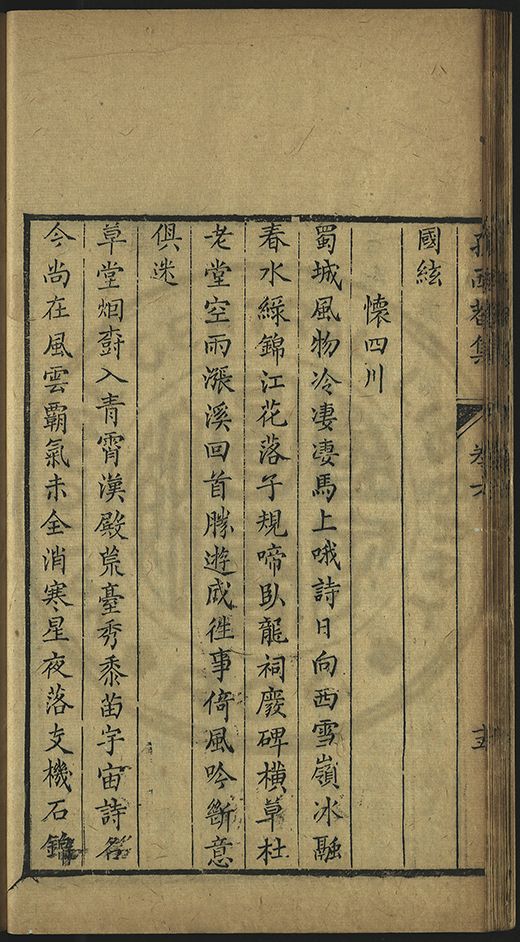 國絃
懷四川
蜀城風物冷凄凄馬上哦詩日向西雪嶺冰融
春水綠錦江花落子規啼臥龍祠廢碑橫草杜
老堂空雨漲溪回首勝遊成徃事倚風吟斷意
俱迷
草堂烟樹入青霄漢殿荒臺秀黍苗宇宙詩名
今尚在風雲霸氣未全消寒星夜落支機石錦